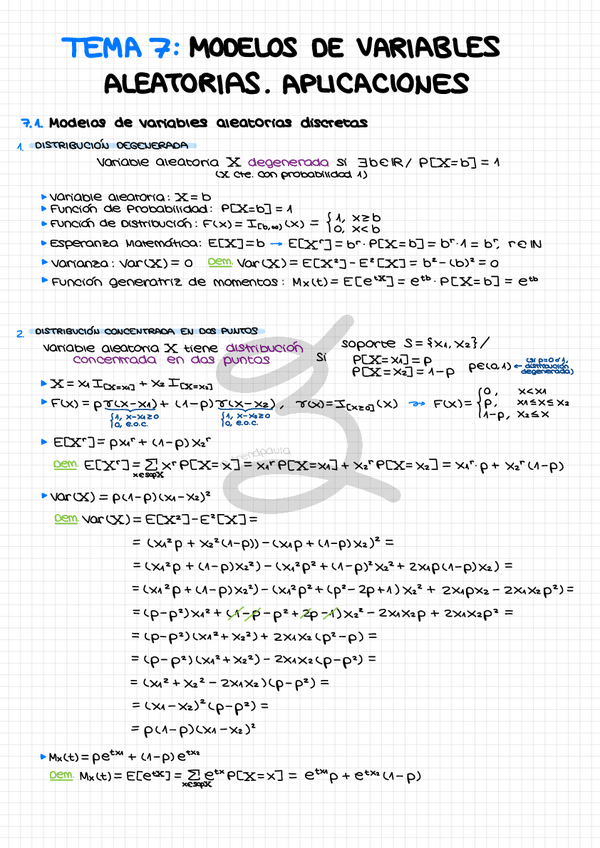 TEMA 7: MODELOS DE VARIABLES
ALEATORIAS. APLICACIONES
7.1. Modelos de variables aleatorias discretas
1. DISTRIBUCIÓN DEGENERADA
Variable aleatoria X degenerada si ∃b∈ℝ / P[X=b] = 1
(X cte. con probabilidad 1)
▸ Variable aleatoria: X=b
▸ Función de Probabilidad: P[X=b] = 1
▸ Función de Distribución: F(x) = I[b,∞)(x) = { 1, x≥b
0, x<b
▸ Esperanza Matemática: E[X]=b → E[Xʳ]= bʳ·P[X=b] = bʳ·1 = bʳ, r∈ℕ
▸ Varianza: Var(X) = 0 Dem. Var(X) = E[X²]-E²[X] = b²-(b)² = 0
▸ Función generatriz de momentos: Mx(t) = E[e^tX] = e^tb·P[X=b] = e^tb
2. DISTRIBUCIÓN CONCENTRADA EN DOS PUNTOS
Variable aleatoria X tiene distribución
concentrada en dos puntos
si
soporte S={x₁,x₂}/
P[X=x₁]=p
P[X=x₂]=1-p
p∈(0,1)
← (si p=0 ó 1, distribución degenerada)
▸ X = x₁ I[X=x₁] + x₂ I[X=x₂]
▸ F(x) = pγ(x-x₁) + (1-p)γ(x-x₂), γ(x)=I[x≥0](x) → F(x)= { 0, x<x₁
p, x₁≤x≤x₂
1-p, x₂≤x
{1, x-x₁≥0
0, e.o.c.
{1, x-x₂≥0
0, e.o.c.
▸ E[Xʳ] = px₁ʳ + (1-p)x₂ʳ
trendpaula
Dem. E[Xʳ] = Σ xʳP[X=x] = x₁ʳP[X=x₁] + x₂ʳP[X=x₂] = x₁ʳ·p + x₂ʳ(1-p)
x∈sopX
▸ Var(X) = p(1-p)(x₁-x₂)²
Dem. Var(X) = E[X²]-E²[X] =
= (x₁²p + x₂²(1-p)) - (x₁p + (1-p)x₂)² =
= (x₁²p + (1-p)x₂²) - (x₁²p² + (1-p)²x₂² + 2x₁p(1-p)x₂) =
= (x₁²p + (1-p)x₂²) - (x₁²p² + (p²-2p+1)x₂² + 2x₁px₂ - 2x₁x₂p²) =
= (p-p²)x₁² + (1-p-p²+2p-1)x₂² - 2x₁x₂p + 2x₁x₂p² =
= (p-p²)(x₁²+x₂²) + 2x₁x₂(p²-p) =
= (p-p²)(x₁²+x₂²) - 2x₁x₂(p-p²) =
= (x₁²+x₂²-2x₁x₂)(p-p²) =
= (x₁-x₂)²(p-p²) =
= p(1-p)(x₁-x₂)²
▸ Mx(t) = pe^tx₁ + (1-p)e^tx₂
Dem. Mx(t) = E[e^tX] = Σ e^tx P[X=x] = e^tx₁p + e^tx₂(1-p)
x∈sopX